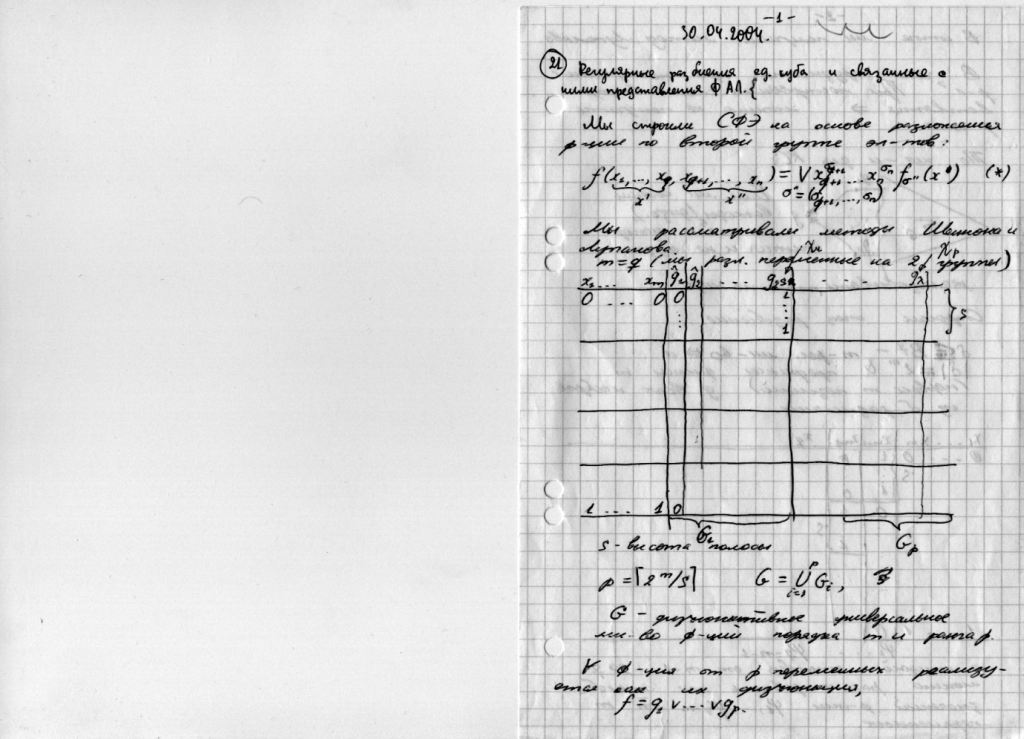 -1-
30.04.2004.
21 Регулярные разбиения ед. куба и связанные с
ними представления ФАЛ.{
Мы строили СФЭ на основе разложения
ф-ции по второй группе эл-тов:
f(x₁,...,x_q, x_{q+1},...,x_n) = V x_{q+1}^{σ_{q+1}} ... x_n^{σ_n} f_{σ''}(x') (*)
x' x'' σ''=(σ_{q+1},...,σ_n)
Мы рассматривали методы Шеннона и
Лупанова
m=q (мы разл. переменные на 2 группы)
x₁ ... x_m ĝ₁ ĝ₂ ... ... g_λ
0 ... 0 0 1
⋮ ⋮ s
1
1 ... 1 0
G₁ G_p
s - высота полосы
p = ⌈2^m/s⌉ G = ⋃_{i=1}^p G_i,
G - дизъюнктивное универсальное
мн-во ф-ций порядка m и ранга p.
∀ ф-ция от p переменных реализу-
ется как их дизъюнкция,
f = g₁ ∨ ... ∨ g_p.